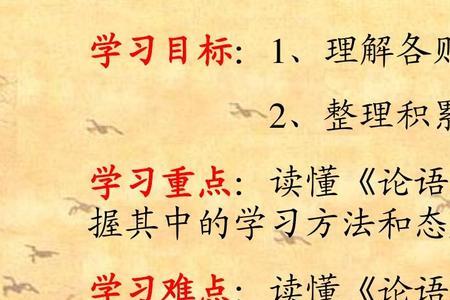 学习目标：1、理解各则
2、整理积累
学习重点：读懂《论语
握其中的学习方法和态
学习难点：读懂《论语